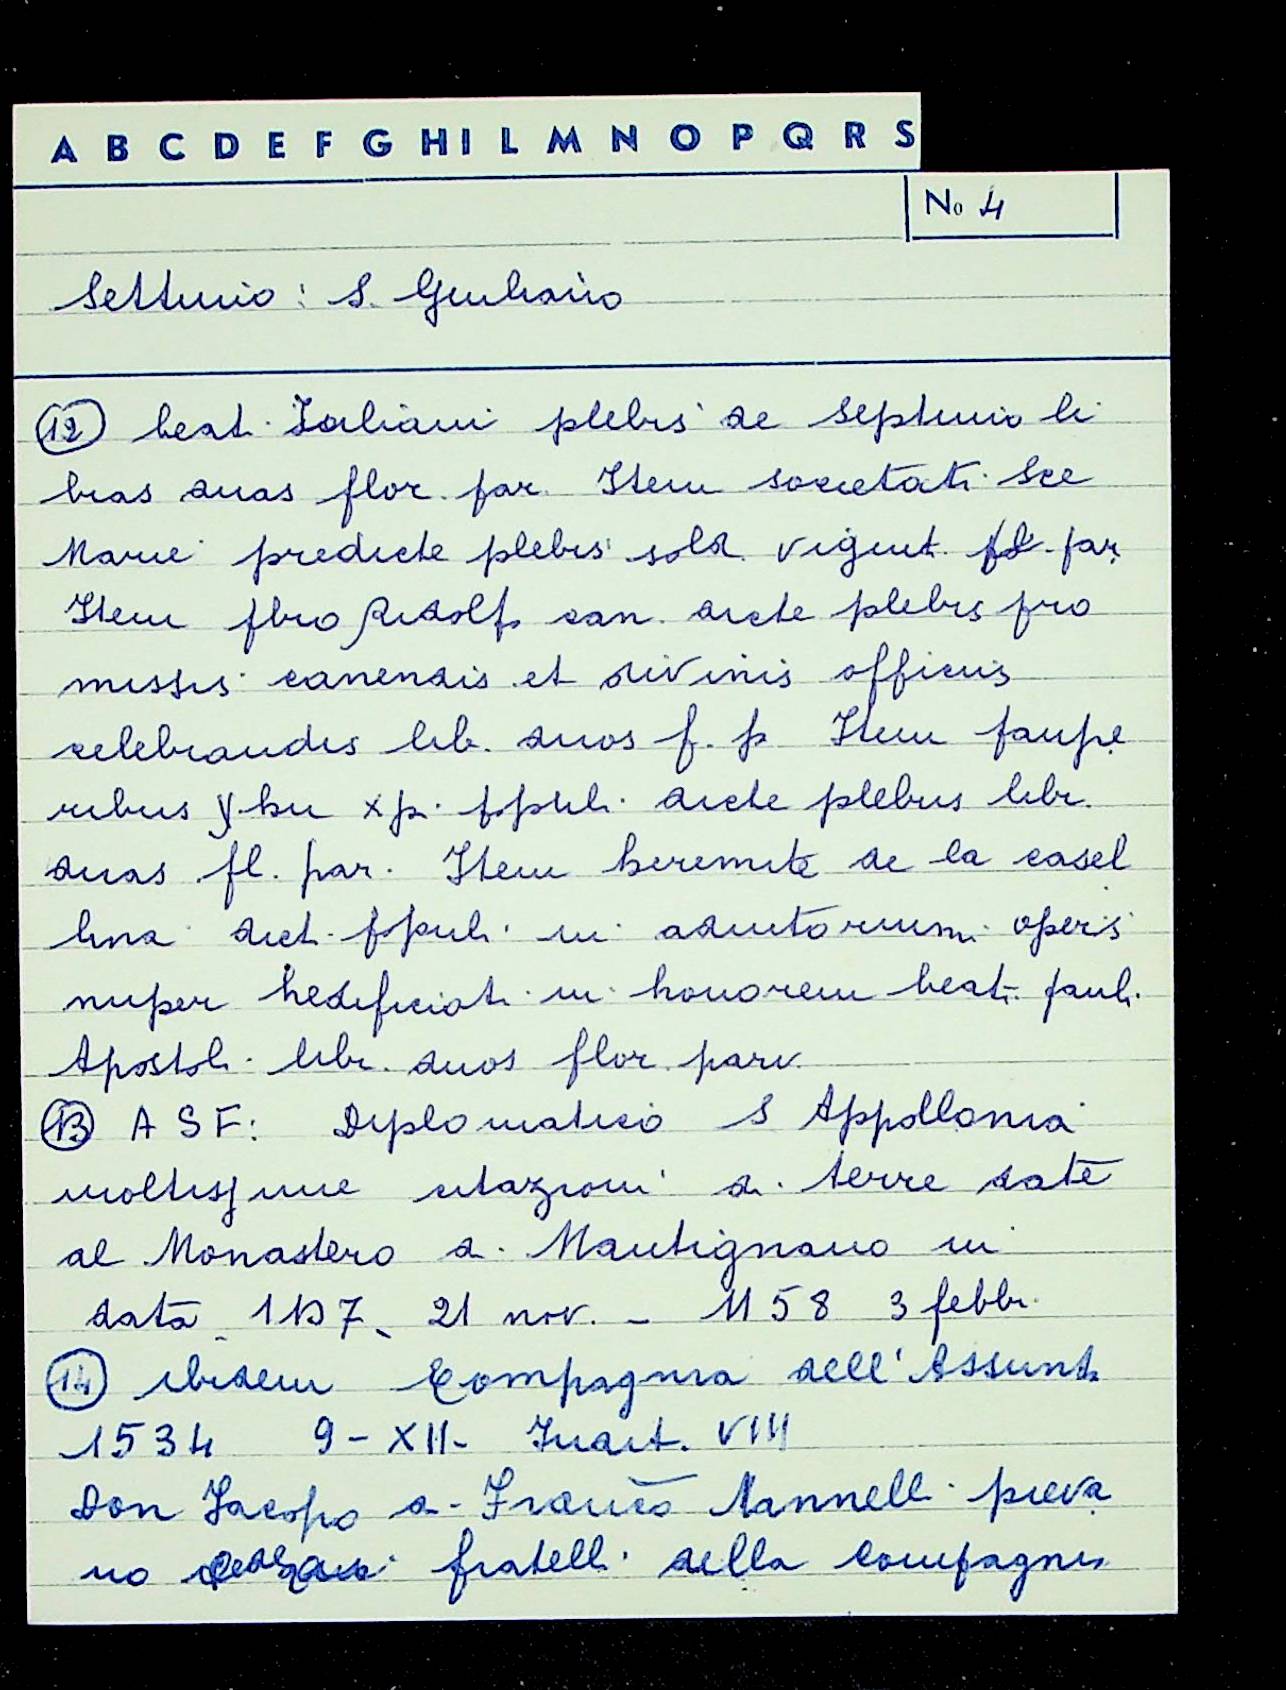 A B C D E F G H I L M N O P Q R S
No 4
Settimo: S. Giuliano
12 beati Iuliani plebis de Septimo li
bras duas flor. par. Item societati Sce
Marie predicte plebis sold. vigint. fl. par.
Item pbro Ridolf. can. dicte plebis pro
missis canendis et divinis officiis
celebrandis lib. duos f. p. Item paupe
ribus yhu xp. ppuli dicte plebis libr.
duas fl. par. Item heremite de la casel
lina dict. ppuli in adiutorium operis
nuper hedificiati in honorem beati pauli
Apostoli libr. duos flor. parv.
13 A S F: Diplomatico S Appollonia
moltissime citazioni di terre date
al Monastero di Mantignano in
data 21 nov. - 1158 3 febbr.
14 ibidem Compagnia dell'Assunta
1534 9-XII- Inart. VIII
Don Jacopo di Franco Nannelli pieva
no fratelli della Compagnia